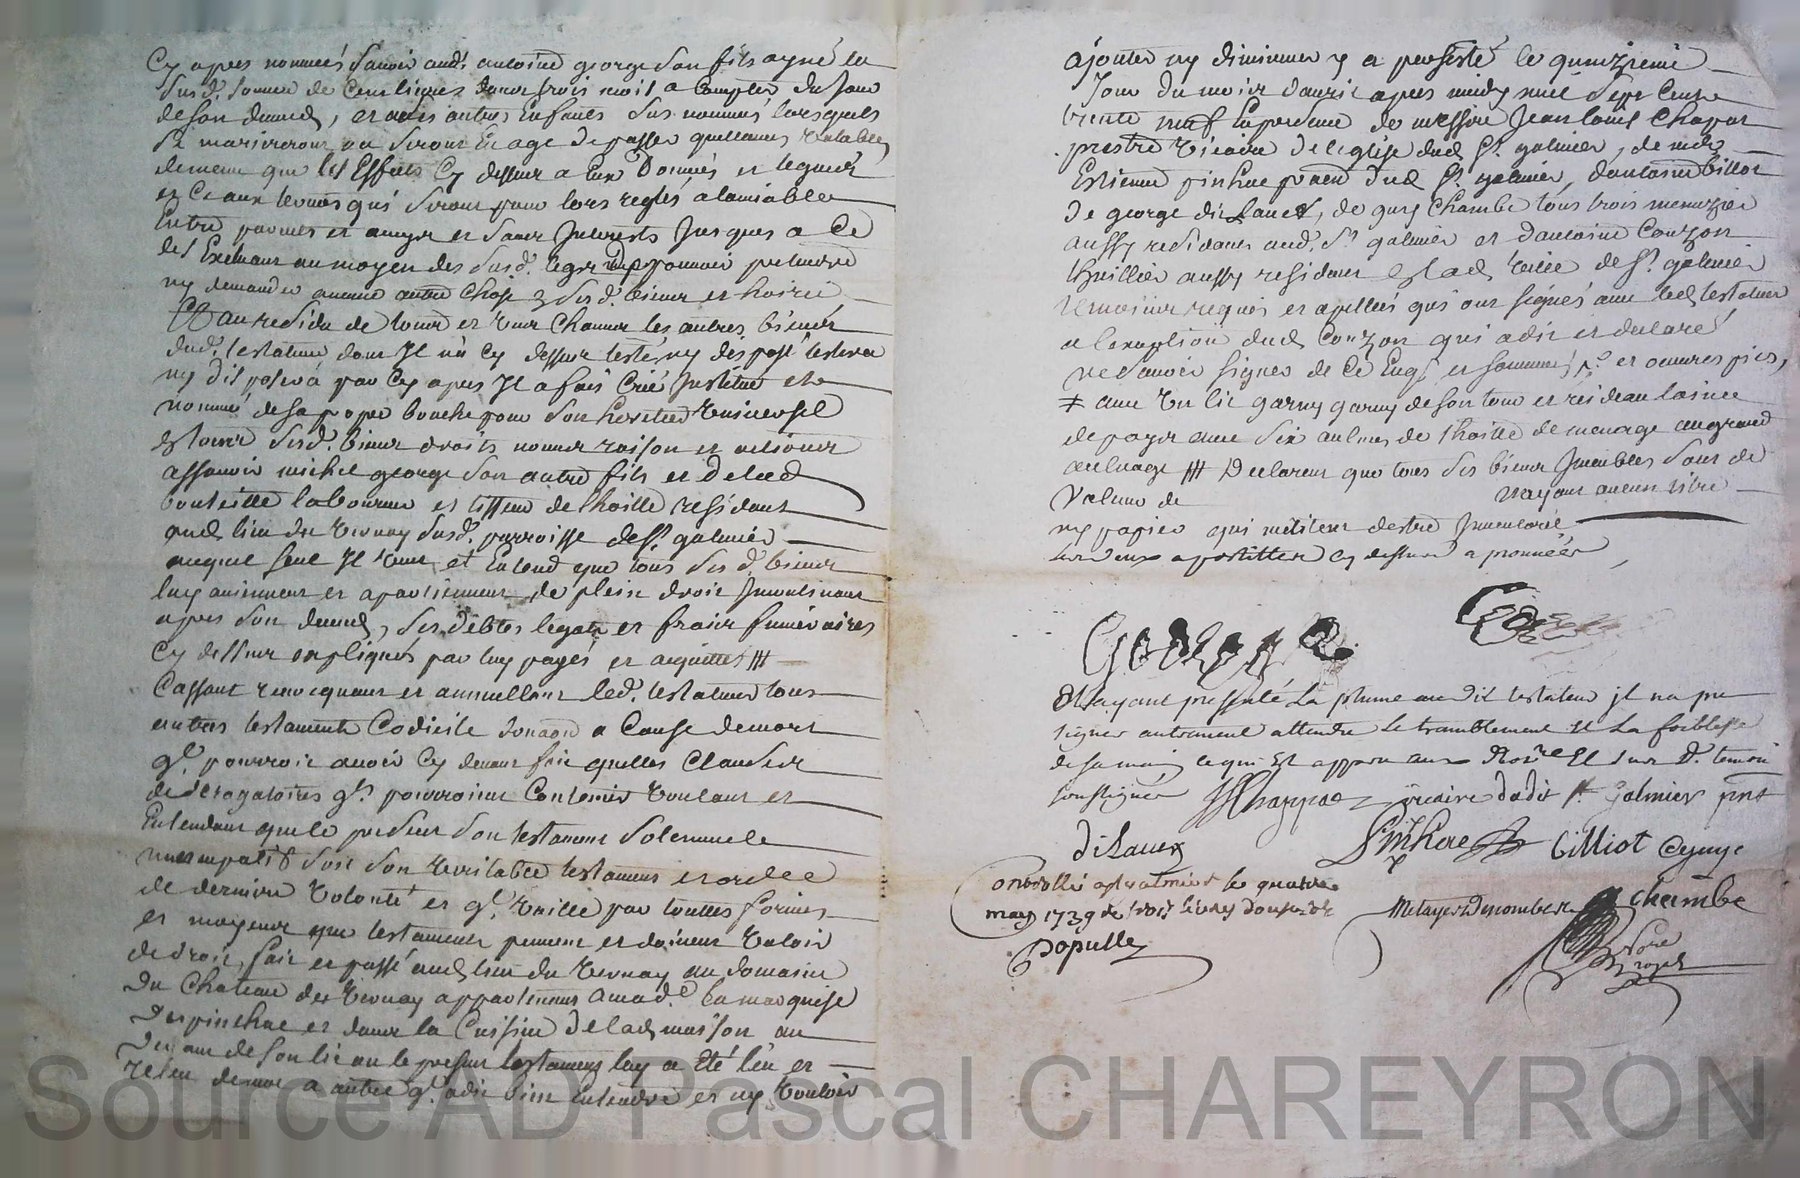 Cy apres nommés sauoir aud. antoine george son fils ayné la
susd. somme de Cent liures dans trois mois a Compter du Jour
de son deced, et aux autres Enfants sus nommés lorsquels
se mariveront ou seront En age de passer quittances valables
de meme que les Effets Cy dessus a Eux Donnés et legués
et Ce aux termes qui seront pour lors reglés alamiable
Entre parents et amys et sans Interests Jusques a Ce
les Excluant au moyen des susd. legs pouuoir pretendre
ny demander aucune autre Chose sesd. biens et hoirie
Et au residu de tous et vns Chacuns les autres biens
dud. testateur dont Il n'a Cy dessus testé ny disposé testera
ny disposera par Cy apres Il a fait Créé Institué et
nommé de sa propre bouche pour son heritier vniuersel
En tous sesd. biens droits noms raison et actions
assauoir michel george son autre fils et de lad
bouteille laboureur et tisseur de thoille residant
aud. lieu du vernay susd. parroisse de St. galmier
auquel seul Il veut et Entend que tous sesd. biens
luy auiennent et apartiennent de plein droit Incontinant
apres son deced, ses debtes legats et frais funeraires
Cy dessus expliqués par luy payés et acquittés ///
Cassant reuocquant et annullant led. testateur tous
autres testaments Codicile donaon a Cause de mort
ql. pourroit auoir Cy deuant fait quelles Clauses
de derogatoires qls. pourroient Contenir voulant et
Entendant que le present son testament solemnele
nuncupatif soit son veritable testament et ordre
de derniere volonté et ql. vaille par touttes formes
et moyens que testaments peuuent et doiuent valoir
de droit, fait et passé aud. lieu du vernay au domaine
du Chateau des vernay appartenant a mad.e la marquise
du pinchae et dans la Cuisine de lad. maison au
deuant de son lit ou le present testament luy a Eté leu et
releu de mot a autre ql. a dit bien Entendre et ny vouloir
ajouter ny diminuer y a persisté le quinzieme
Jour du mois dauril apres midy mil sept Cents
trente neuf En presence de messire Jean louis Chapat
prestre vicaire de leglise dud. St. galmier, de mre
Estienne pinhac praen dud. St. galmier, dantoine billiot
de george dilauex, de guy Chambe tous trois menuzier
aussy residants aud. St. galmier et dantoine Couzon
thuillier aussy residant En lad. ville de St. galmier
temoins requis et apellés qui ont signés auec led. testateur
a lexception dud. Couzon qui a dit et declaré
ne sauoir signer de Ce Enqs. et sommé, et oeuures pies,
≠ auec vn lit garny garny de son tour et rideau laine
de pays auec six aulnes de thoille de menage au grand
aulnage /// Declarent que tous ses biens Imeubles sont de
valeur de nayant aucun titre
ny papier qui meritent destre Inuentorié
les deux apostilles cy dessus aprouuées
George
Et ayant presenté La plume au dit testateur il na peu
signer autrement attendu Le tramblement et La foiblesse
de sa main ce qui Est apparu aux Noire Et sus d. temoin
soussignés Chappat vicaire dudit St Galmier pnt
dilauex Pinhac billiot
Controllé a St galmier le quatre
may 1739
Dopulle
chambe
Nore
royal
Source AD Pascal CHAREYRON